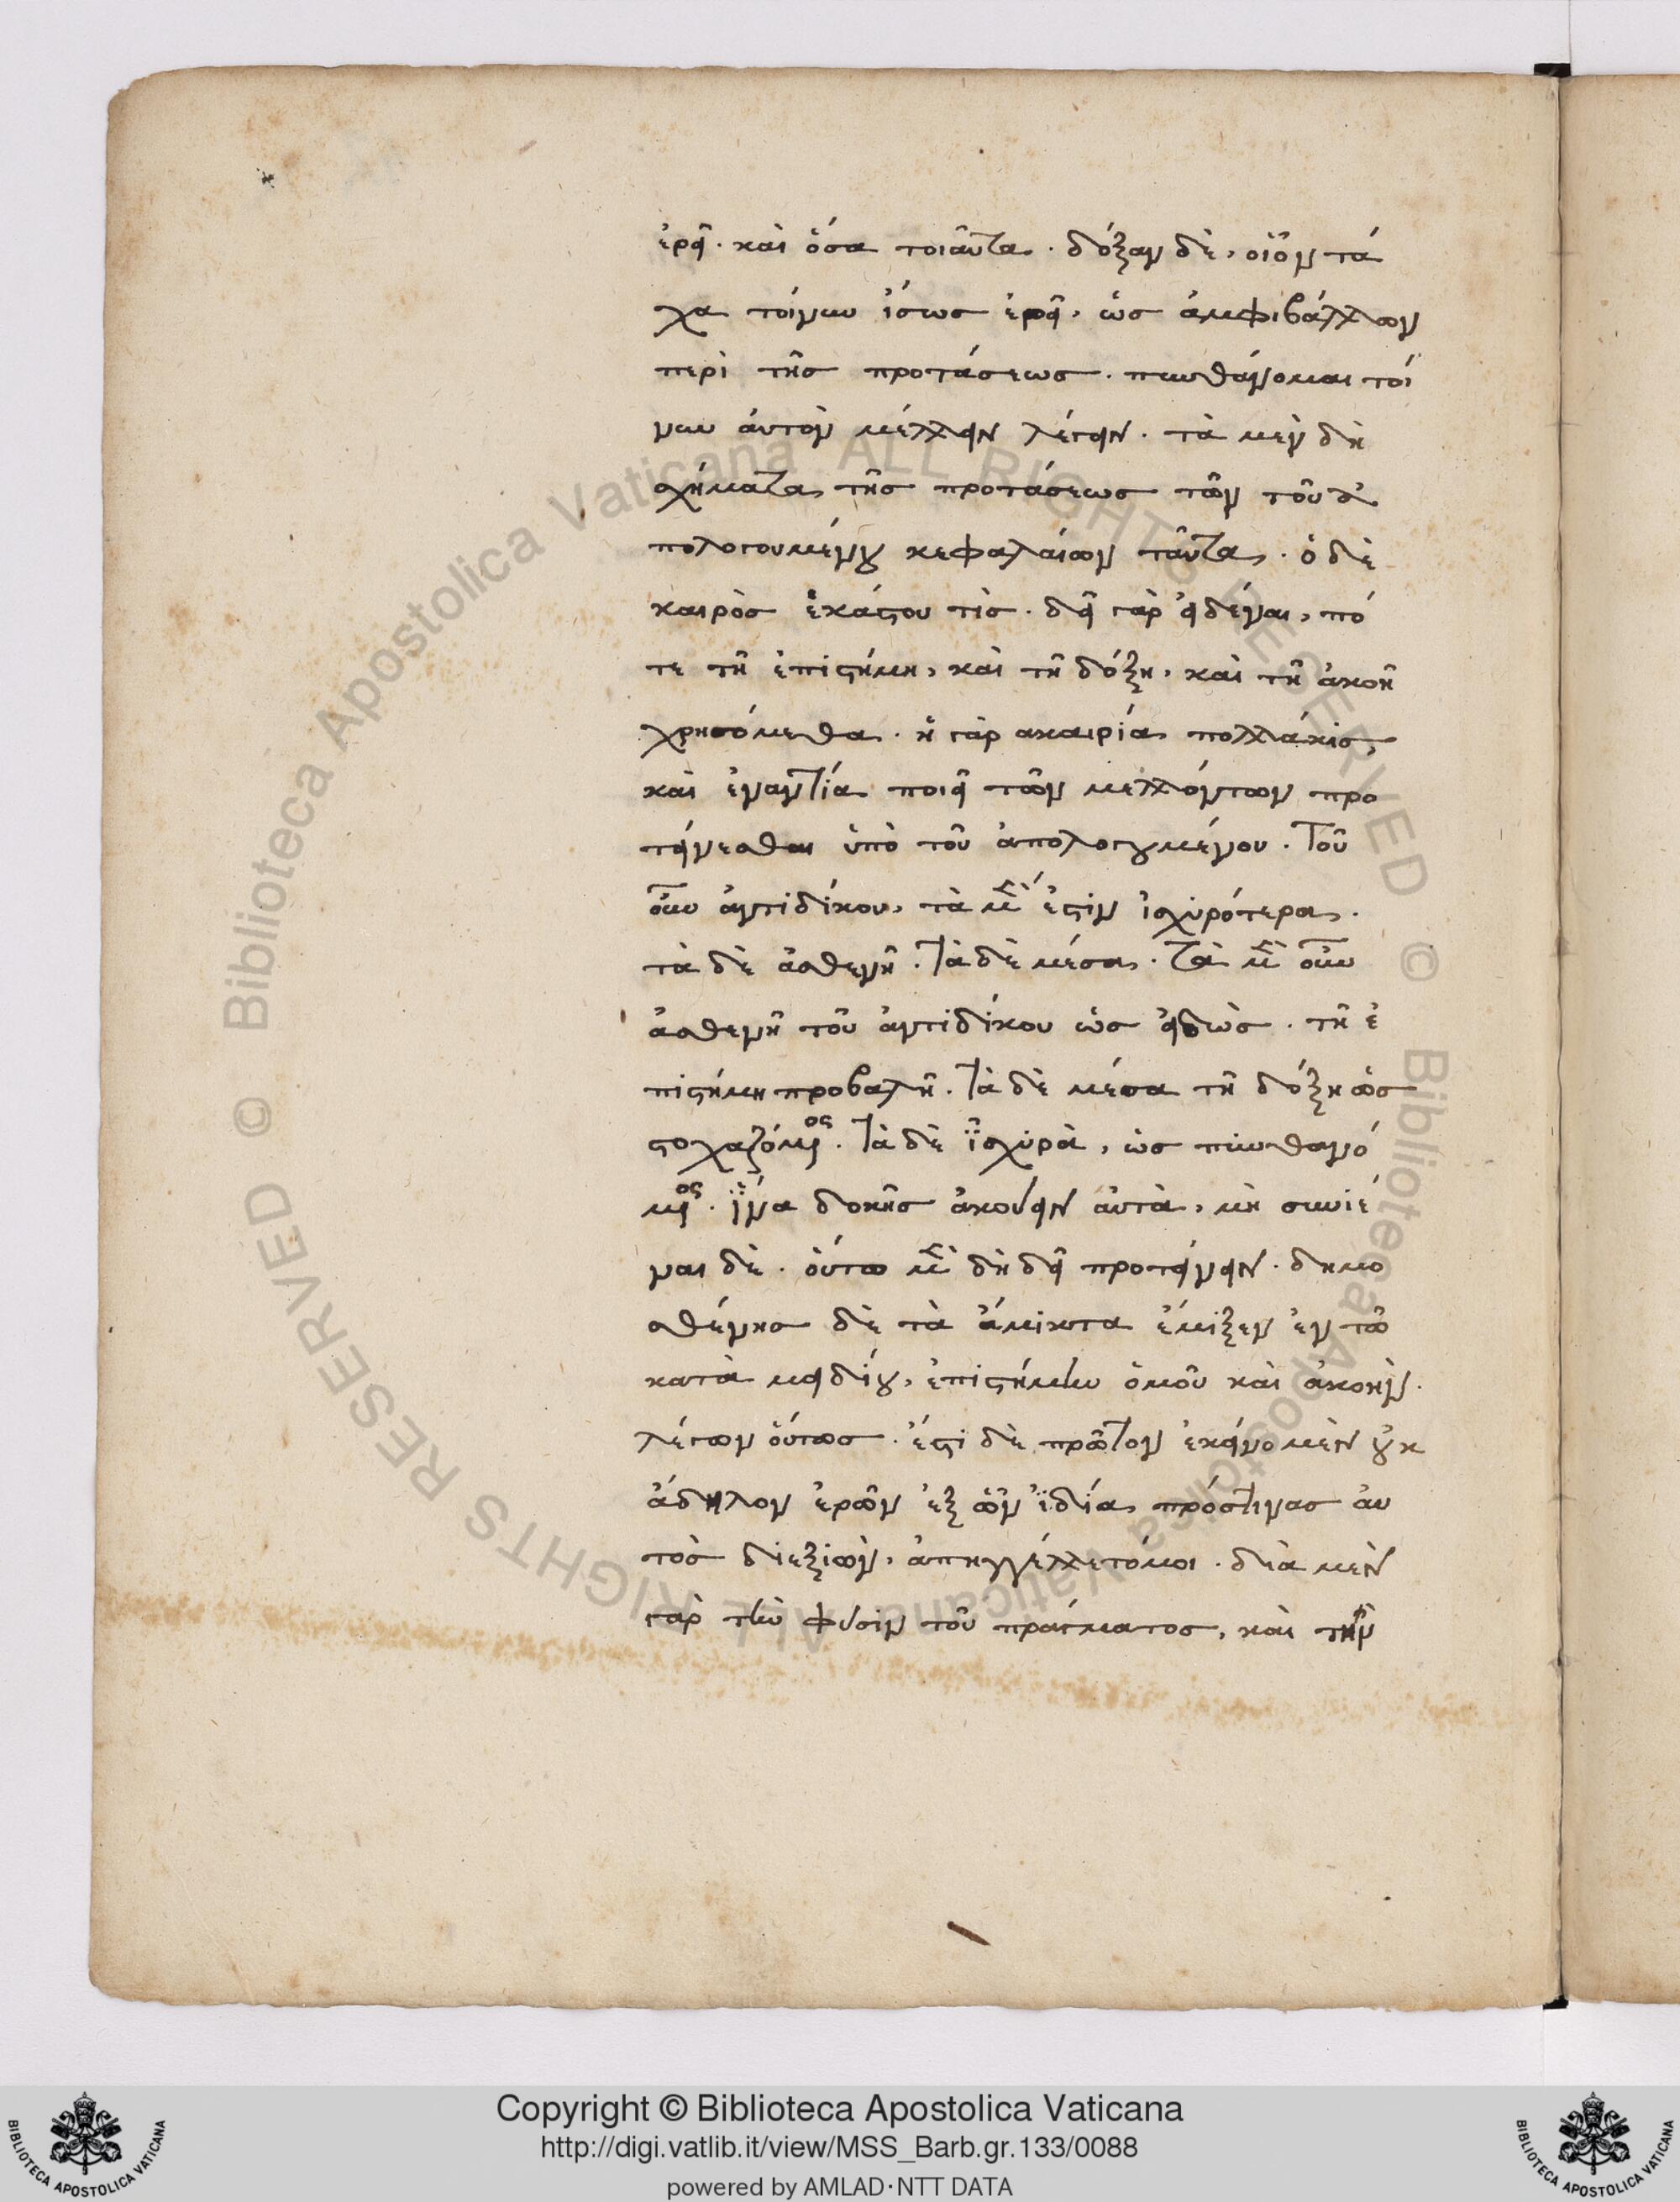 ἐρεῖ. καὶ ὅσα τοιαῦτα. δόξαν δὲ, οἷον τά
χα τοίνυν ἴσως ἐρεῖ, ὡς ἀμφιβάλλων
περὶ τῆς προτάσεως. πυνθάνομαι τοί
νυν αὐτὸν μέλλειν λέγειν. τὰ μὲν δὴ
σχήματα τῆς προτάσεως τῶν τοῦ ἀ
πολογουμένου κεφαλαίων ταῦτα. ὁ δὲ
καιρὸς ἑκάστου τίς. δεῖ γὰρ εἰδέναι, πό
τε τῆ ἐπιστήμη, καὶ τῆ δόξη, καὶ τῆ ἀκοῆ
χρησόμεθα. ἡ γὰρ ακαιρία πολλάκις,
καὶ ἐναντία ποιεῖ τῶν μελλόντων προ
τείνεσθαι ὑπὸ τοῦ ἀπολογουμένου. Τοῦ
οὖν ἀντιδίκου, τὰ μὲν ἐστιν ἰσχυρότερα.
τὰ δὲ ἀσθενῆ. Τὰ δὲ μέσα. Τὰ μὲν οὖν
ἀσθενῆ τοῦ ἀντιδίκου ὡς εἰδὼς. τῆ ἐ
πιστήμη προβαλῆ. Τὰ δὲ μέσα τῆ δόξη ὡς
στοχαζόμενος. Τὰ δὲ ἰσχυρὰ, ὡς πυνθανό
μενος. ἵνα δοκῆς ἀκούειν αὐτὰ, μὴ συνιέ
ναι δὲ. οὕτω μὲν δὴ δεῖ προτείνειν. δημο
σθένης δὲ τὰ ἄμικτα ἔμιξεν ἐν τῶ
κατὰ μειδίου, ἐπιστήμην ὁμοῦ καὶ ἀκοήν.
λέγων οὕτως. ἔστι δὲ πρῶτον ἐκεῖνο μὲν οὐκ
ἄδηλον ἐρῶν ἐξ ὧν ἰδία πρός τινας αὐ
τὸς διεξιὼν, ἀπηγγέλλετό μοι. διὰ μὲν
γὰρ τὴν φύσιν τοῦ πράγματος, καὶ τὴν
Copyright © Biblioteca Apostolica Vaticana
http://digi.vatlib.it/view/MSS_Barb.gr.133/0088
powered by AMLAD·NTT DATA